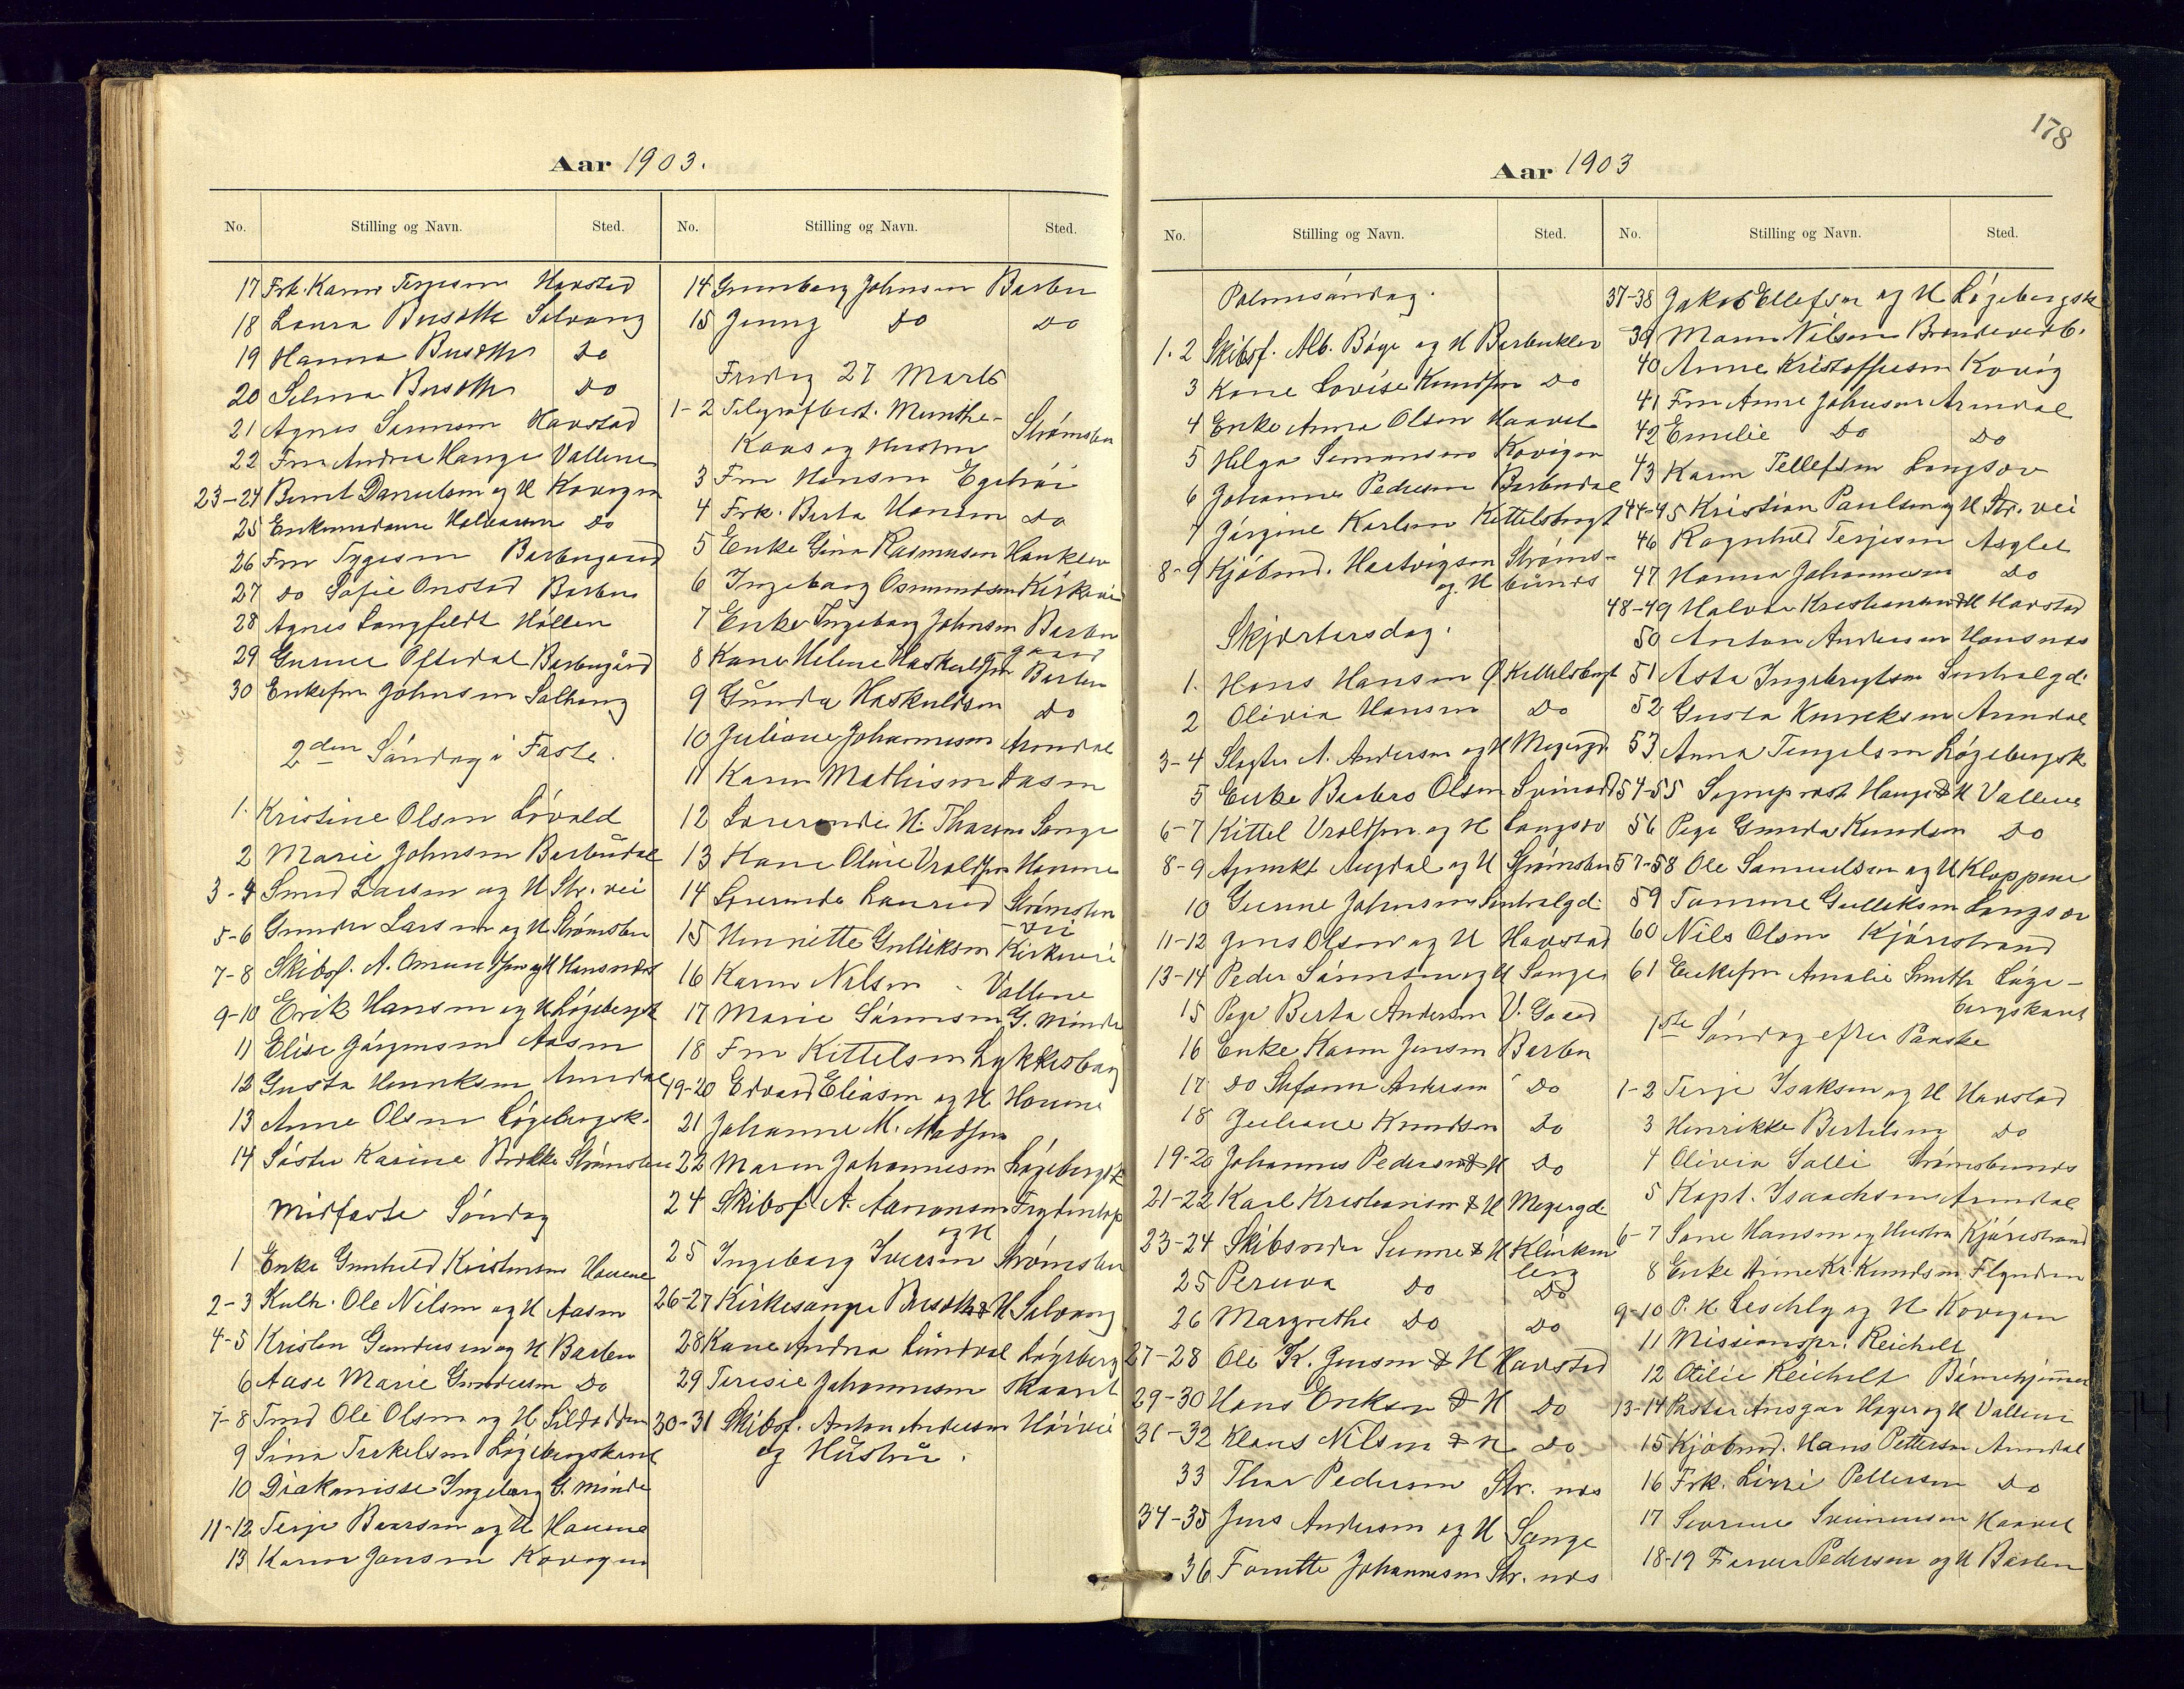 178
Aar 1903.
No. Stilling og Navn. Sted.
17 Frk. Karen Terjesen Havstad
18 Laura Busoth Solvang
19 Hanna Busoth do
20 Selma Busoth do
21 Agnes Sørensen Havstad
22 Fru Andrea Hauge Vallene
23-24 Bernt Danielsen og H Kovigen
25 Enkemadame Halvorsen do
26 Fru Tygesen Barbugaard
27 do Sofie Onstad Barbu
28 Agnes Langfeldt Höllen
29 Gurine Oftedal Barbugård
30 Enkefru Johnsen Solhaug
2den Söndag i Faste.
1. Kristine Olsen Lövold
2 Marie Johnsen Barbudal
3-4 Smed Larsen og H Str. vei
5-6 Gunder Larsen og H Strømsbu
7-8 Skibsf. A. Omundsen og H Hansnæs
9-10 Erik Hansen og H Lögebergsk
11 Elise Jörgensen Aasen
12 Gusta Henriksen Arendal
13 Anne Olsen Lögebergsk.
14 Söster Karine Brekke Strømsbu
Midfaste Söndag
1 Enke Gunhild Kristensen Havene
2-3 Kulh. Ole Nilsen og H Aasen
4-5 Kristen Gundersen og H Barbu
6 Aase Marie Gundersen Do
7-8 Tmd Ole Olsen og H Sildodden
9 Sina Terkelsen Lögebergskaret
10 Diakonisse Ingeborg G. minde
11-12 Terje Baarsen og H Havene
13 Karen Jensen Kovigen
No. Stilling og Navn. Sted.
14 Gunborg Johnsen Barbu
15 Jenny do do
Fredag 27 Marts
1-2 Telegrafbest. Munthe-
Kaas og Hustru Strømsbu
3 Fru Hansen Egehøi
4 Frk. Berta Hansen do
5 Enke Gina Rasmussen Hauklev
6 Ingeborg Osmundsen Kirkevei
7 Enke Ingeborg Johnsen Barbu
gaard
8 Kone Helene Haskuldsen Barbu
9 Gunda Haskuldsen do
10 Juliane Johannesen Arendal
11 Karen Mathisen Aasen
12 Lærerinde H. Thorsen Songe
13 Kone Oline Vraldsen Havene
14 Lærerinde Lanrud Strømsbu
vei
15 Henriette Gulliksen Kirkevei
16 Karen Nilsen Vallene
17 Marie Sörensen G. Minde
18 Fru Kittelsen Lykkesborg
19-20 Edvard Eliasen og H Havene
21 Johanne M. Madsen
22 Maren Johannesen Lögebergsk
24 Skibsf. A. Aanonsen Frydentop
og H
25 Ingeborg Iversen Strømsbu
26-27 Kirkesanger Busoth & H Solvang
28 Kone Andrea Lundvol Lögeberg
29 Teresie Johannesen skaaret
30-31 Skibsf. Anton Andersen Höivei
og Hustru.
Aar 1903
No. Stilling og Navn. Sted.
Palmesöndag.
1.2 Skibsf. Alb. Böge og H Barbuklev
3 Kone Lovise Knudsen Do
4 Enke Anna Olsen Haavet
5 Helga Simonsen Kovigen
6 Johanne Pedersen Barbudal
7 Jörgine Karlsen Kittelsbugt
8-9 Kjöbmd. Hartvigsen Strøms-
og H bunds
Skjærtorsdag.
1. Hans Hansen Ø. Kittelsbugt
2 Olivia Hansen Do
3-4 Slagter A. Andersen og H Meyergd.
5 Enke Barbro Olsen Svinodd
6-7 Kittel Vraldsen og H Langsæ
8-9 Ajunkt Augdal og H Strømsbu
10 Gunne Johnsen Sentralgd.
11-12 Jens Olsen og H Havstad
13-14 Peder Sörensen og H Songe
15 Pige Berta Andersen V. Gaard
16 Enke Karen Jensen Barbu
17 do Stefanie Andersen do
18 Juliane Knudsen do
19-20 Johannes Pedersen & H do
21-22 Karl Kristiansen & H Meyergd.
23-24 Skibsreder Sunne & H Klinken
berg
25 Peruva do do
26 Margrethe do do
27-28 Ole K. Jensen & H Havstad
29-30 Hans Eriksen & H do
31-32 Klaus Nilsen & H do
33 Thor Pedersen Str. næs
34-35 Jens Andersen og H Songe
36 Fanitte Johannesen Str. næs
No. Stilling og Navn. Sted.
37-38 Jakob Ellefsen og H Lögebergsk
39 Maren Nilsen Brændevinsb.
40 Anne Kristoffersen Kovig
41 Fru Anne Johnsen Arendal
42 Emelie do do
43 Karen Tellefsen Langsæ
44-45 Kristian Paulsen og H Str. vei
46 Ragnhild Terjesen Asylet
47 Hanna Johannesen do
48-49 Halvor Kristiansen & H Havstad
50 Anton Andersen Hansnæs
51 Asta Ingebrigtsen Sentralgd.
52 Gusta Henriksen Arendal
53 Anna Tengelsen Lögebergsk
54-55 Sogneprest Hauge & H Vallene
56 Pige Gunda Knudsen do
57-58 Ole Samuelsen og H Kloppene
59 Tomine Gulliksen Langsæ
60 Nils Olsen Kjörestrand
61 Enkefru Amalie Smith Löge-
bergskaret
1ste Söndag efter Paaske
1-2 Terje Isaksen og H Havstad
3 Henrikke Bertelsen do
4 Olivia Salli Strømsbunds
5 Kapt. Isaachsen Arendal
6-7 Sone Hansen og Hustru Kjörestrand
8 Enke Anne Kr. Knudsen Flynden
9-10 P. H. Leschly og H Kovigen
11 Missionspr. Reichelt
12 Otilie Reichelt Börnehjemmet
13-14 Pastor Ansgar Höyer og H Vallene
15 Kjöbmd. Hans Petterson Arendal
16 Frk. Lizzi Petterson do
17 Severine Sveinunsen Haavet
18-19 Farver Pedersen og H Barbu